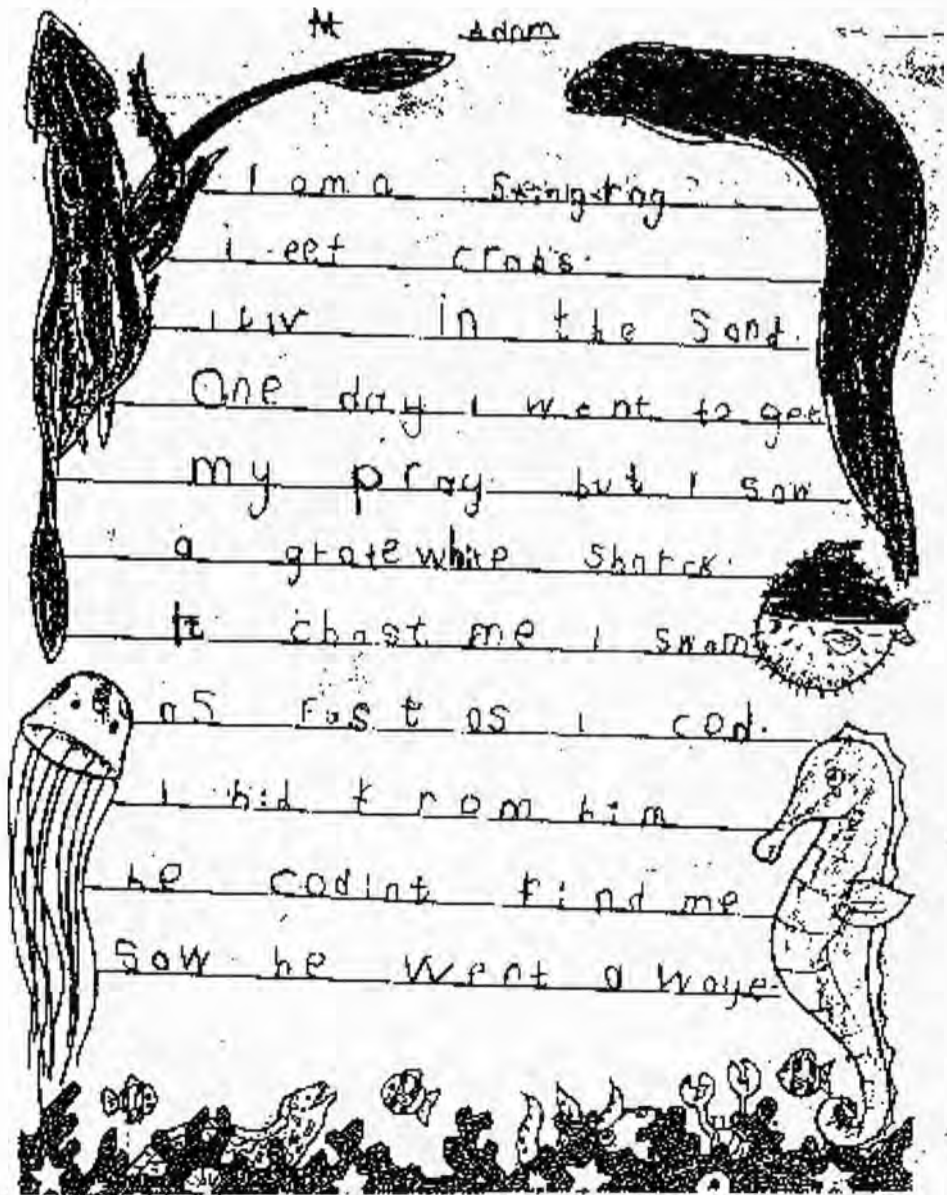 Adam
I am a Steingring
i eet crabs.
i liv in the Sand.
One day i went to get
my pray but I saw
a grate white sharck.
it chast me I swam
as fast as i cod.
I hid from him
he codint find me
Sow he went a waye.